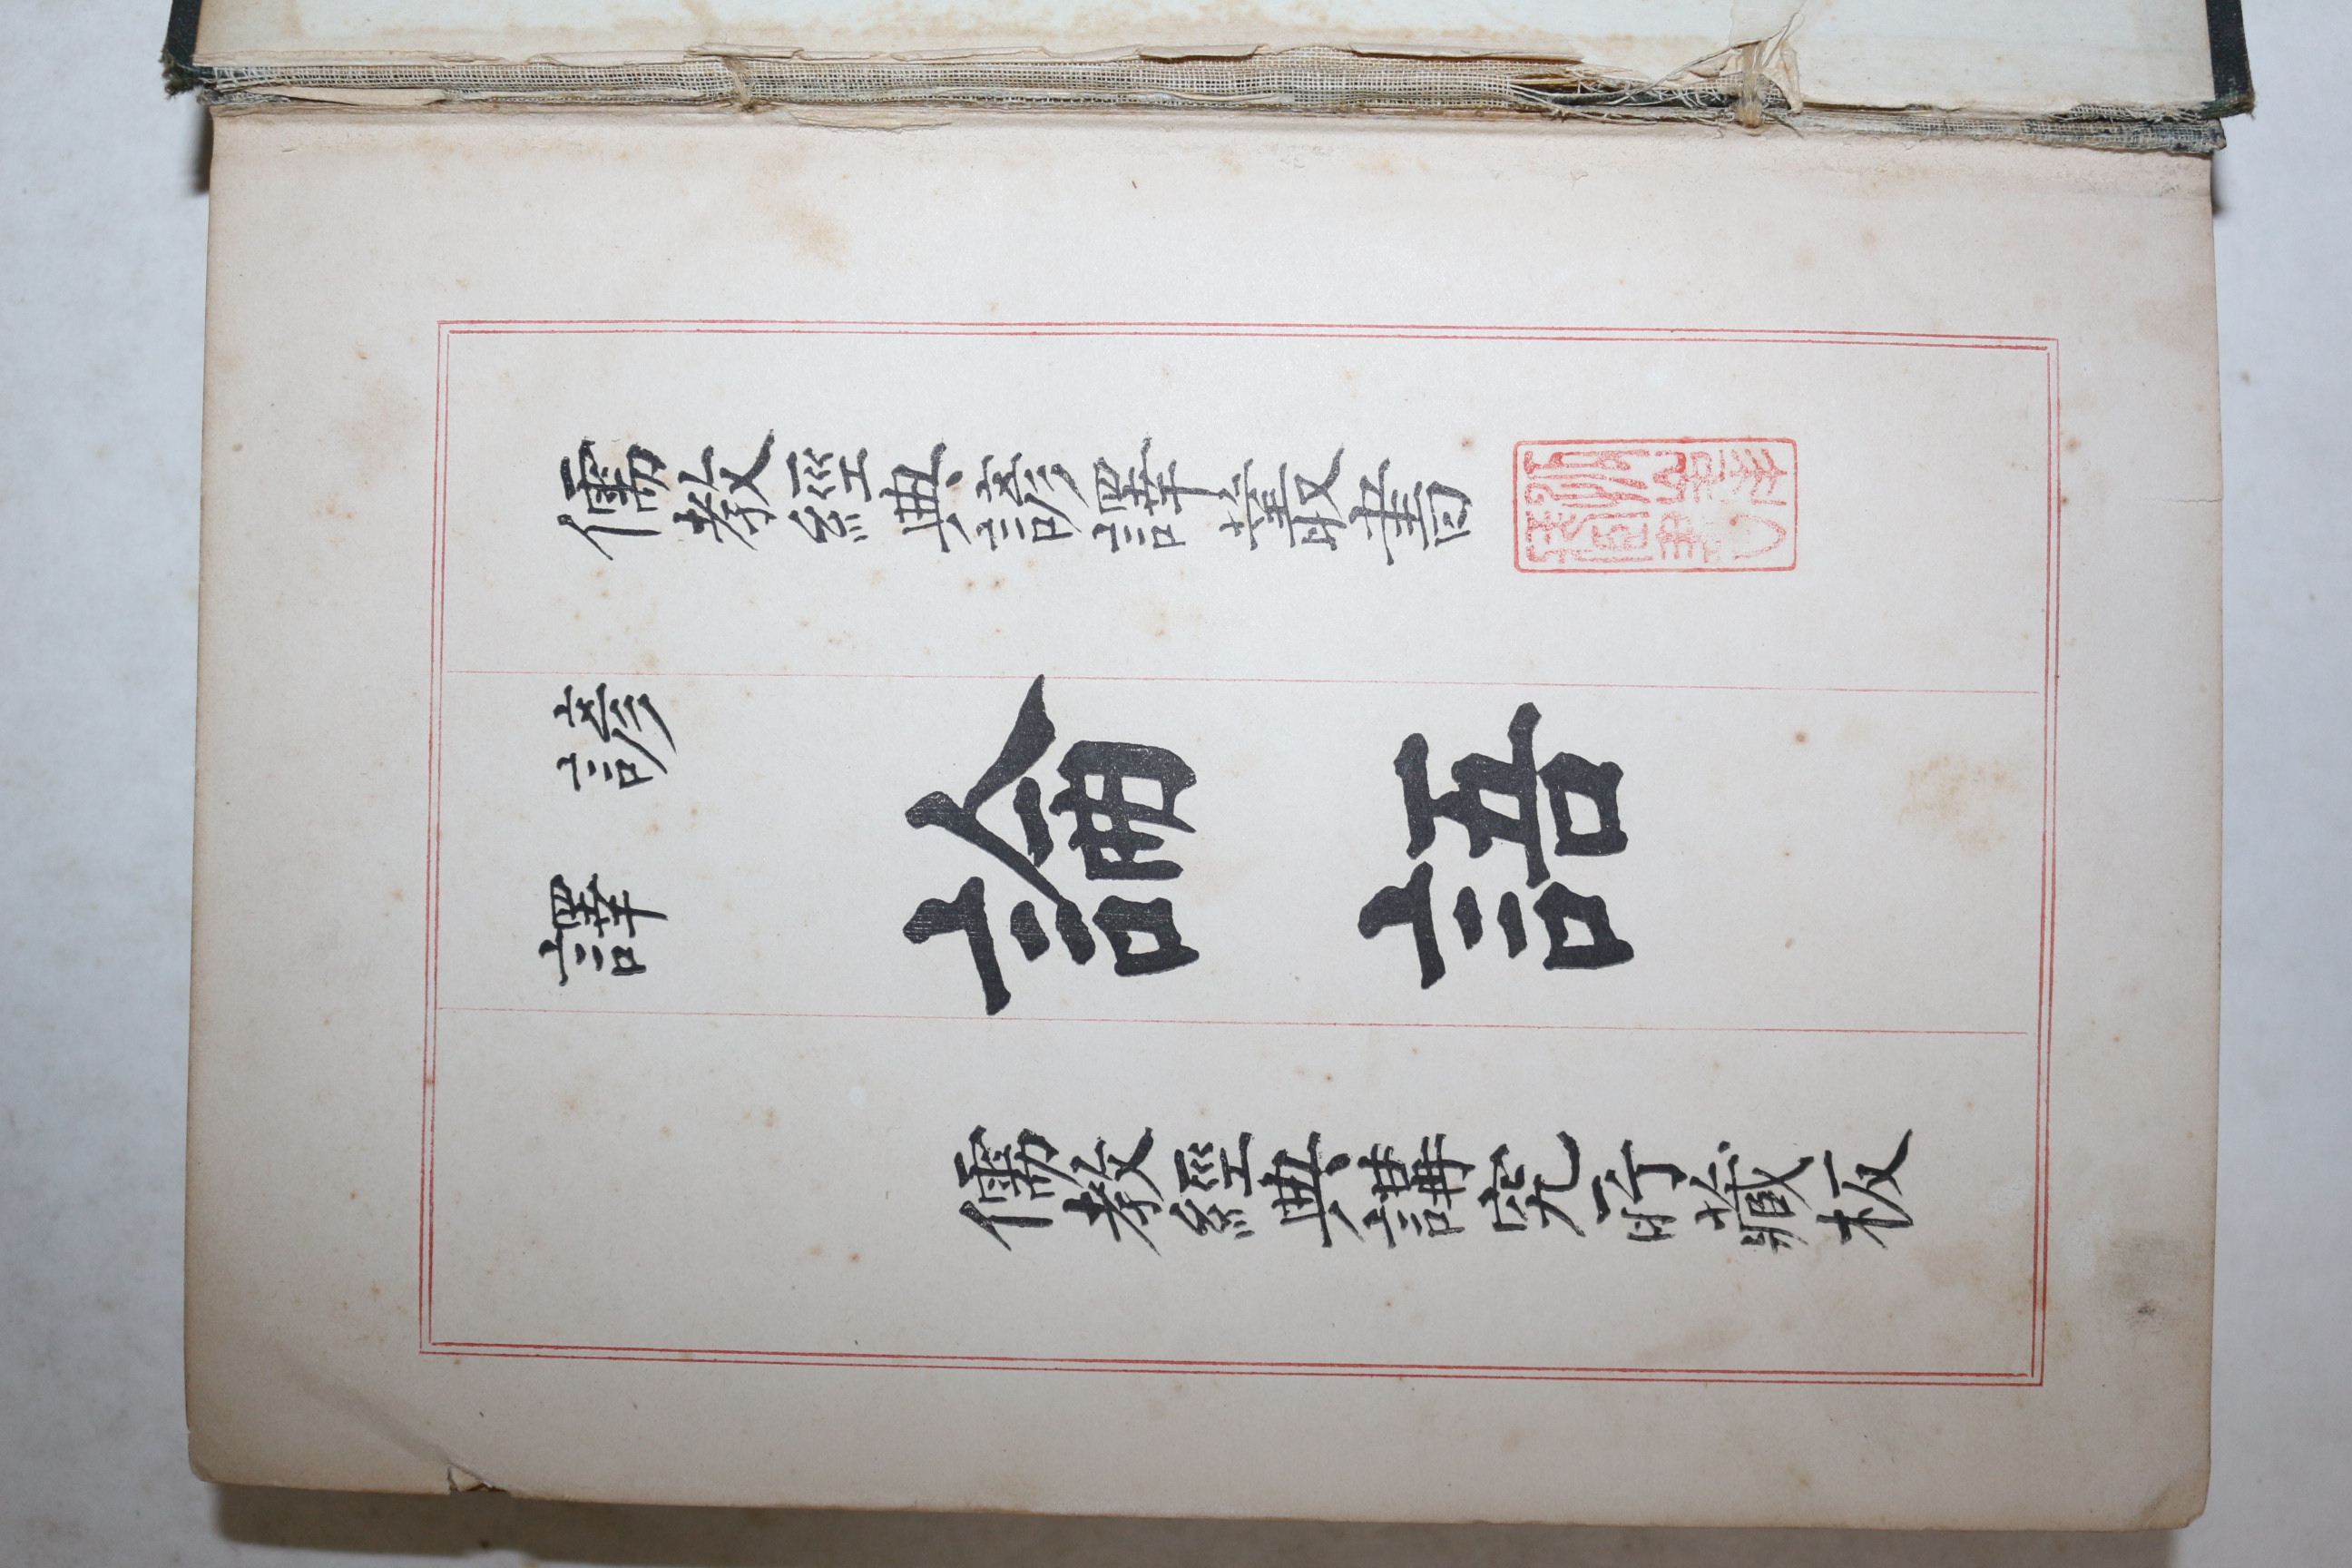 儒教經典諺譯叢書
諺譯
論語
儒教經典講究所藏板